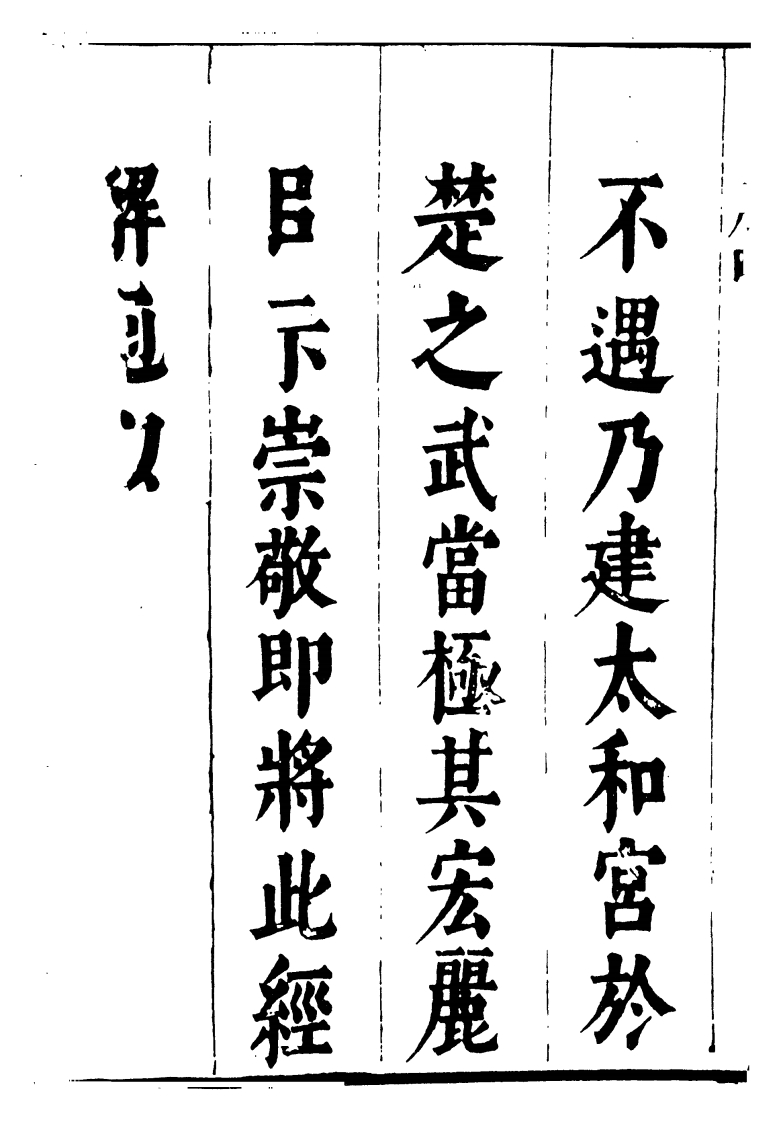 不遇乃建太和宮於
楚之武當極其宏麗
㠯示崇敬即將此經